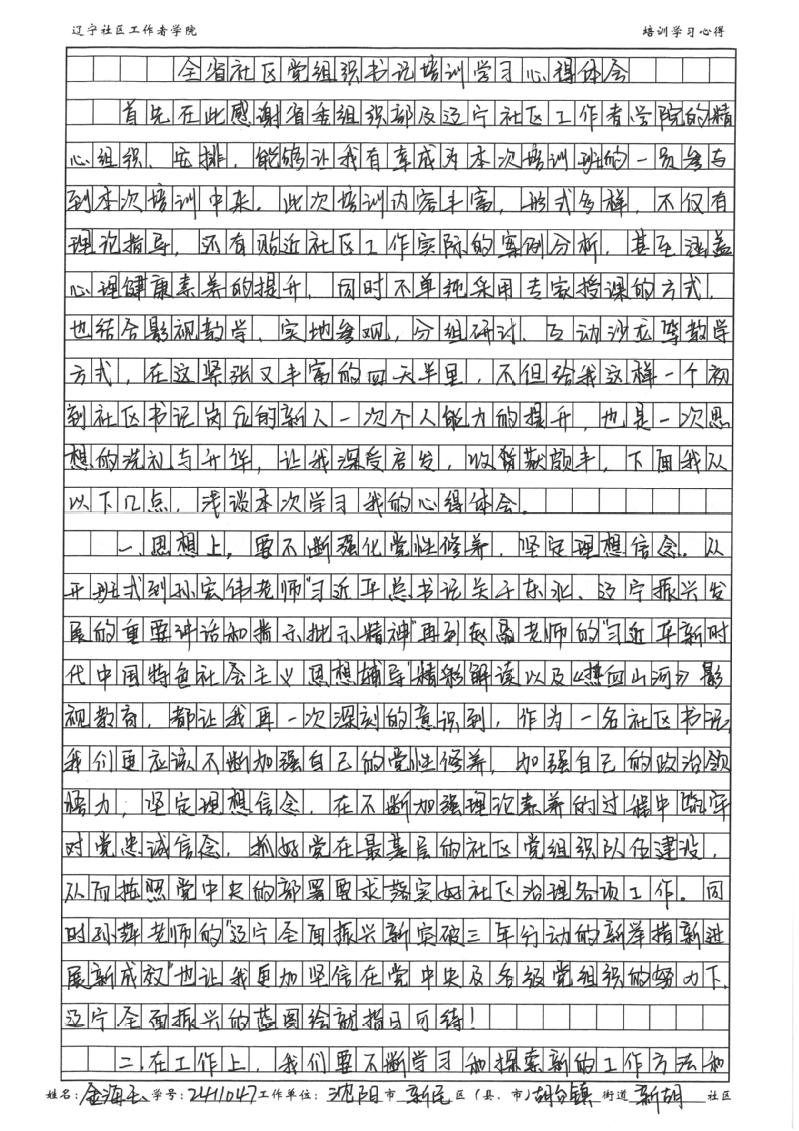 辽宁社区工作者学院 培训学习心得
全省社区党组织书记培训学习心得体会
首先在此感谢省委组织部及辽宁社区工作者学院的精
心组织、安排,能够让我有幸成为本次培训班的一员参与
到本次培训中来。此次培训内容丰富,形式多样,不仅有
理论指导,还有贴近社区工作实际的案例分析,甚至涵盖
心理健康素养的提升,同时不单纯采用专家授课的方式,
也结合影视教学、实地参观,分组研讨、互动沙龙等教学
方式,在这紧张又丰富的四天半里,不但给我这样一个初
到社区书记岗位的新人一次个人能力的提升,也是一次思
想的洗礼与升华,让我深受启发,收货颇丰,下面我从
以下几点,浅谈本次学习我的心得体会。
一.思想上,要不断强化党性修养,坚定理想信念。从
开班式到孙宏伟老师“习近平总书记关于东北、辽宁振兴发
展的重要讲话和指示批示精神”再到赵磊老师的“习近平新时
代中国特色社会主义思想辅导”精彩解读以及《热血山河》影
视教育,都让我再一次深刻的意识到,作为一名社区书记,
我们更应该不断加强自己的党性修养,加强自己的政治领
悟力,坚定理想信念,在不断加强理论素养的过程中筑牢
对党忠诚信念,抓好党在最基层的社区党组织队伍建设,
从而按照党中央的部署要求落实好社区治理各项工作。同
时孙萍老师的“辽宁全面振兴新突破三年行动的新举措新进
展新成效”也让我更加坚信在党中央及各级党组织的努力下,
辽宁全面振兴的蓝图绘就指日可待!
二.在工作上,我们要不断学习和探索新的工作方法和
姓名:金海玉 学号:2411047 工作单位:沈阳市 新民区(县、市)胡台镇 街道 新胡 社区